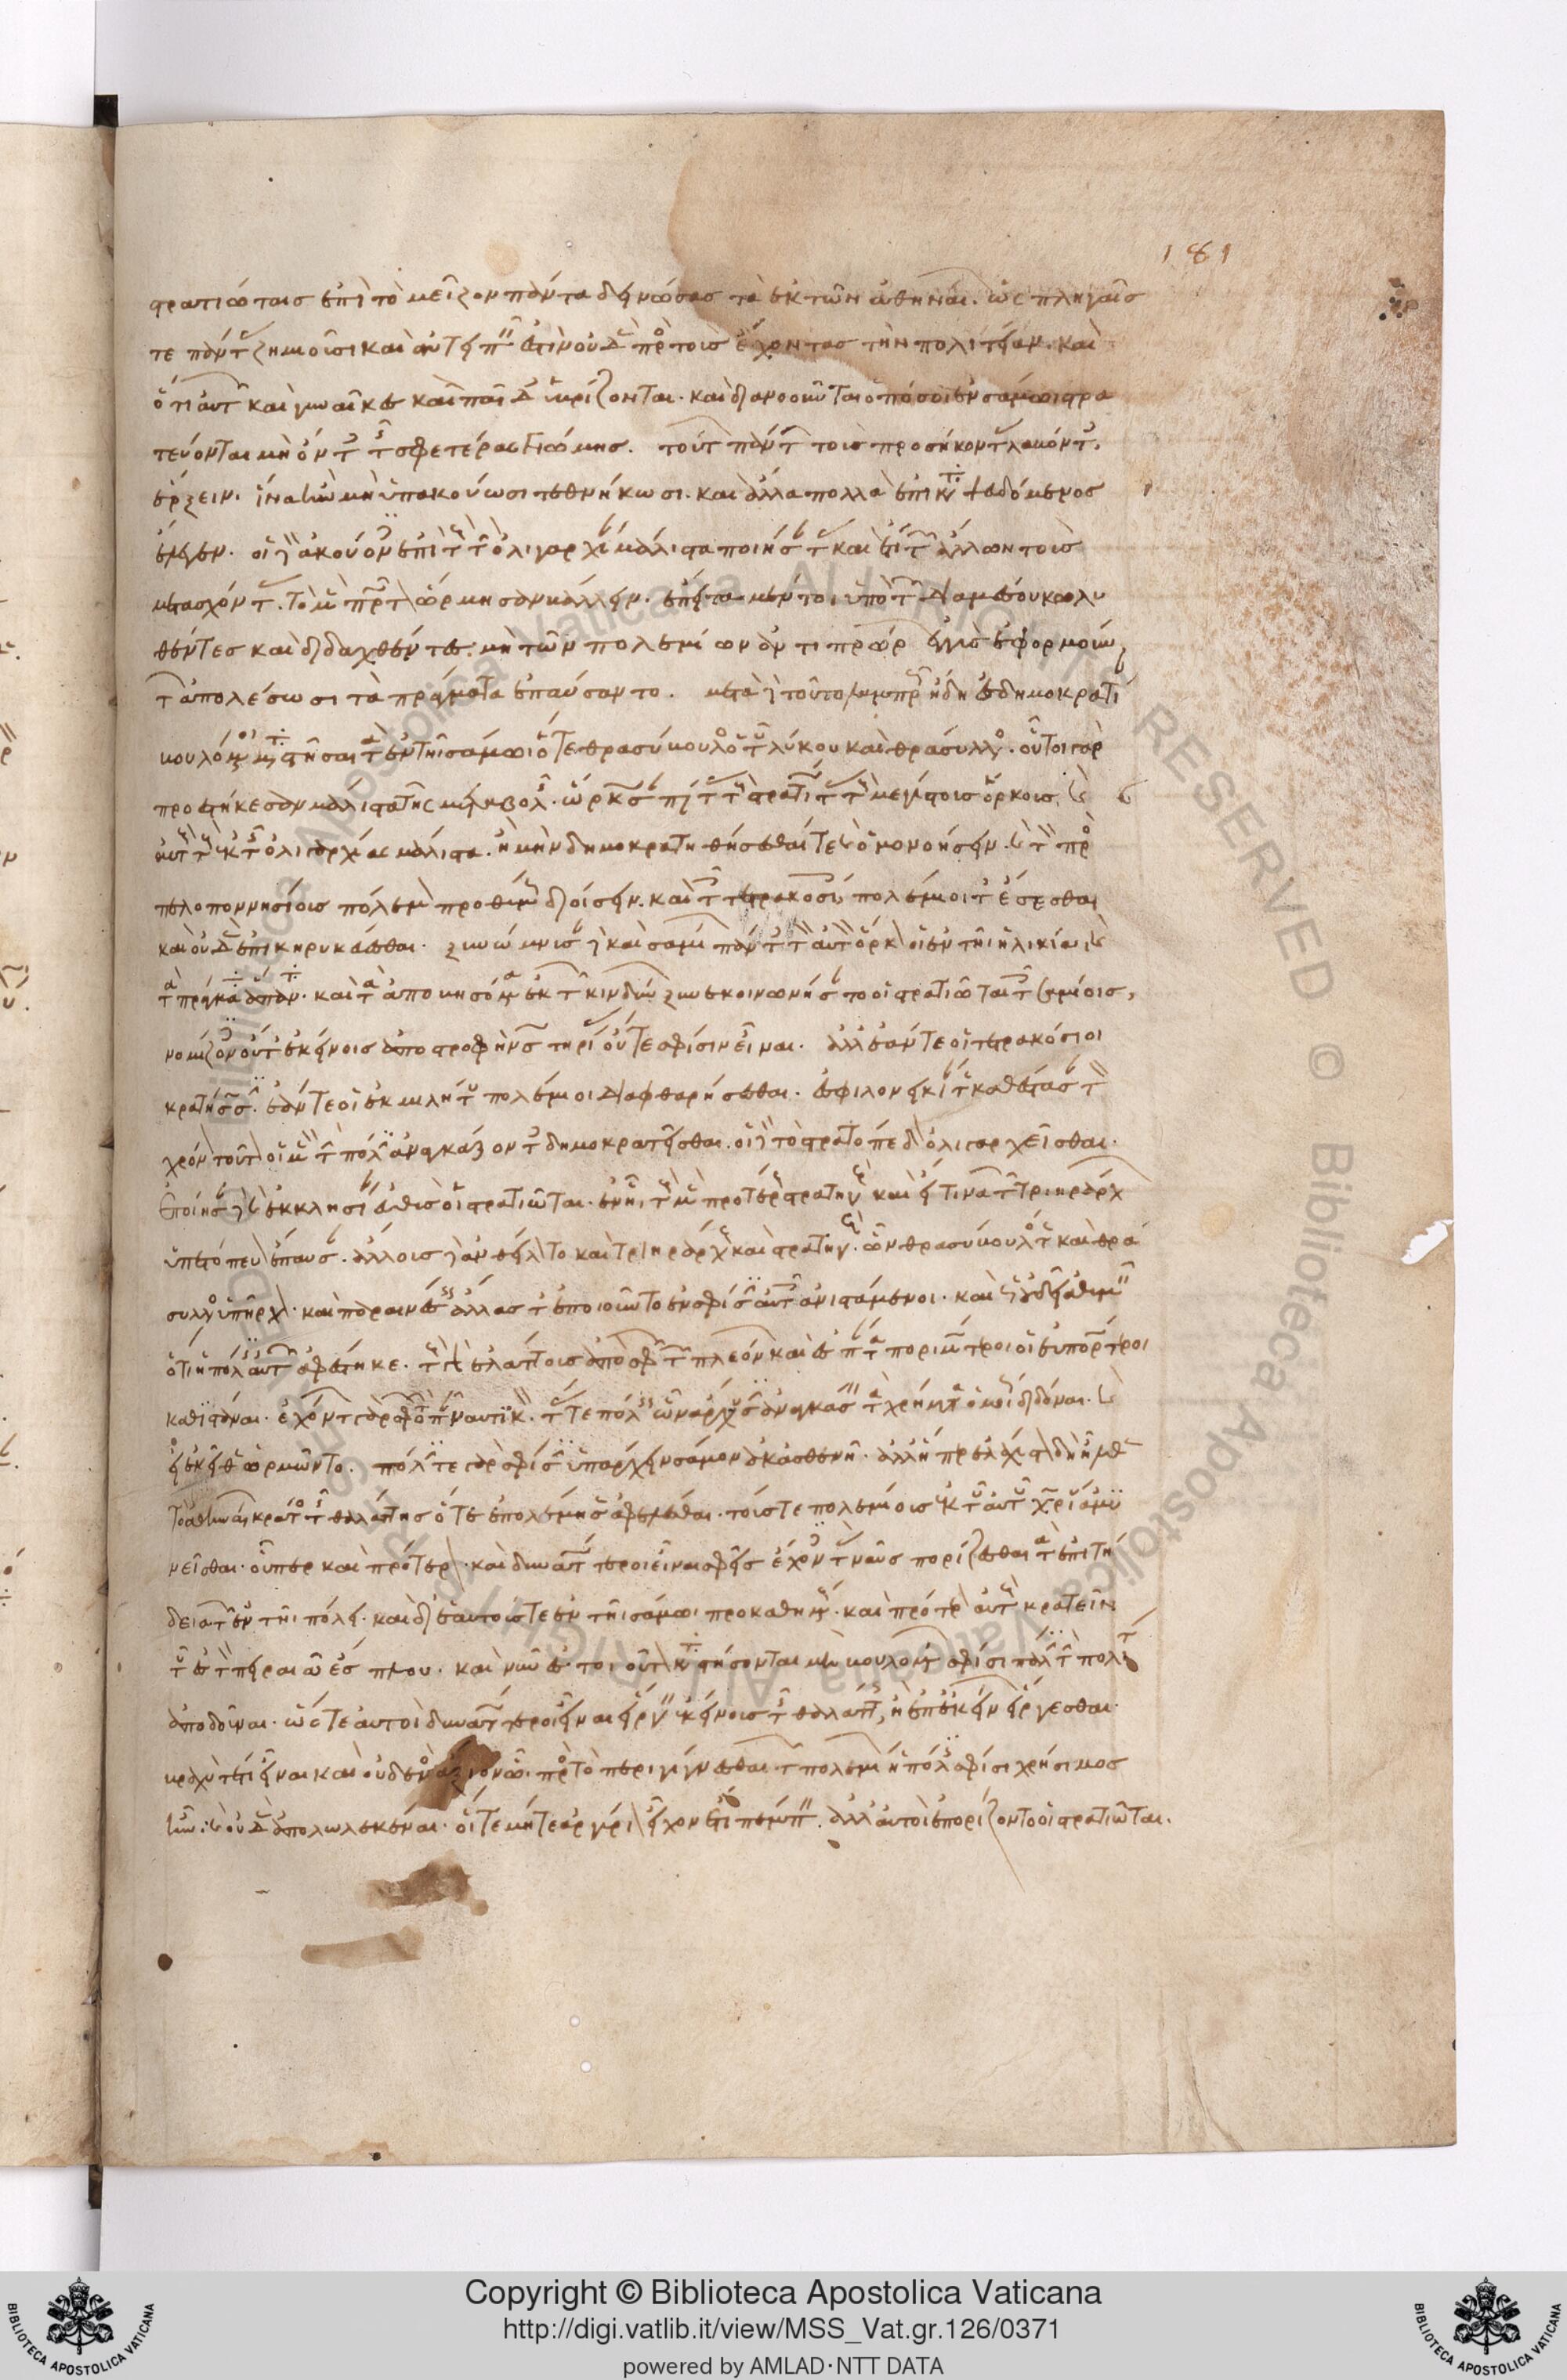 στρατιώταις ἐπὶ τὸ μεῖζον πάντα δεινώσας τὰ ἐκ τῶν ἀθηνῶν. ὡς πληγαῖς
τε πάντας ζημιοῦσι καὶ ἀντειπεῖν ἔστιν οὐδὲν πρὸς τοὺς ἔχοντας τὴν πολιτείαν. καὶ
ὅτι αὐτῶν καὶ γυναῖκες καὶ παῖδες ὑβρίζονται. καὶ διανοοῦνται ὁπόσοι ἐν σάμωι στρα
τεύονται μὴ ὄντες τῆς σφετέρας γνώμης. τούτων πάντων τοὺς προσήκοντας λαβόντες
εἵρξειν. ἵνα ἢν μὴ ὑπακούωσι τεθνήκωσι. καὶ ἄλλα πολλὰ ἐπικαταψευδόμενος
ἔλεγεν. οἱ δὲ ἀκούοντες ἐπὶ τοὺς τὴν ὀλιγαρχίαν μάλιστα ποιήσαντας καὶ ἐπὶ τῶν ἄλλων τοὺς
μετασχόντας. τὸ μὲν πρῶτον ὥρμησαν βάλλειν. ἔπειτα μέντοι ὑπὸ τῶν διαμέσου κωλυ
θέντες καὶ διδαχθέντες μὴ τῶν πολεμίων ἀντιπρώρων ἐγγὺς ἐφορμούν
των ἀπολέσωσι τὰ πράγματα ἐπαύσαντο. μετὰ δὲ τοῦτο λαμπρῶς ἤδη ἐς δημοκρατίαν
βουλόμενοι μεταστῆσαι τὰ ἐν τῆι σάμωι ὅ τε θρασύβουλος ὁ τοῦ λύκου καὶ θράσυλλος. οὗτοι γὰρ
προειστήκεσαν μάλιστα τῆς μεταβολῆς. ὥρκωσαν πάντας τοὺς στρατιώτας τοὺς μεγίστους ὅρκους. καὶ
αὐτοὺς τοὺς ἐκ τῆς ὀλιγαρχίας μάλιστα. ἦ μὴν δημοκρατηθήσεσθαί τε καὶ ὁμονοήσειν. καὶ τὸν πρὸς
πελοποννησίους πόλεμον προθύμως διοίσειν. καὶ τῶν τετρακοσίων πολέμιοί τε ἔσεσθαι
καὶ οὐδὲν ἐπικηρυκεύεσθαι. ξυνώμνυσαν δὲ καὶ σαμίων πάντες τὸν αὐτὸν ὅρκον οἱ ἐν τῆι ἡλικίαι. καὶ
τὰ πράγματα πάντα. καὶ τὰ ἀποβησόμενα ἐκ τῶν κινδύνων ξυνεκοινωνήσαντο οἱ στρατιῶται τοῖς σαμίοις,
νομίζοντες οὔτε ἐκείνοις ἀποστροφὴν σωτηρίας οὔτε σφίσιν εἶναι. ἀλλ' ἐάν τε οἱ τετρακόσιοι
κρατήσωσιν. ἐάν τε οἱ ἐκ μιλήτου πολέμιοι διαφθαρήσεσθαι. ἐς φιλονεικίαν τε καθέστασαν τὸν
χρόνον τοῦτον οἱ μὲν τὴν πόλιν ἀναγκάζοντες δημοκρατεῖσθαι. οἱ δὲ τὸ στρατόπεδον ὀλιγαρχεῖσθαι.
ἐποίησαν δὲ καὶ ἐκκλησίαν εὐθὺς οἱ στρατιῶται. ἐν ἧι τοὺς μὲν προτέρους στρατηγοὺς καὶ εἴ τινα τῶν τριηράρχων
ὑπετόπευον ἔπαυσαν. ἄλλους δὲ ἀνθείλοντο καὶ τριηράρχους καὶ στρατηγούς. ὧν θρασύβουλός τε καὶ θρά
συλλος ὑπῆρχον. καὶ παραινέσεις ἄλλας τε ἐποιοῦντο ἐν σφίσιν αὐτοῖς ἀνιστάμενοι. καὶ ὡς οὐ δεῖ ἀθυμεῖν
ὅτι ἡ πόλις αὐτῶν ἀφέστηκε. τοὺς γὰρ ἐλάττους ἀπὸ σφῶν τῶν πλεόνων καὶ ἐς πάντα ποριμωτέρων
καθεστάναι. ἐχόντων γὰρ σφῶν τὸ πᾶν ναυτικόν. τάς τε πόλεις ὧν ἄρχουσιν ἀναγκάσειν τὰ χρήματα ὁμοίως διδόναι. καὶ
εἰ ἐκεῖθεν ὡρμῶντο. πόλιν τε γὰρ σφίσιν ὑπάρχειν σάμον οὐκ ἀσθενῆ. ἀλλ' ἣ παρ' ἐλάχιστον δὴ ἦλθε
τὸ ἀθηναίων κράτος τῆς θαλάσσης ὅτε ἐπολέμησεν ἀφελέσθαι. τούς τε πολεμίους ἐκ τοῦ αὐτοῦ χωρίου ἀμύ
νεῖσθαι. οὗπερ καὶ πρότερον. καὶ δυνατώτεροι εἶναι σφεῖς ἔχοντες τὰς ναῦς πορίζεσθαι τὰ ἐπιτή
δεια τῶν ἐν τῆι πόλει. καὶ δι' ἑαυτούς τε ἐν τῆι σάμωι προκαθημένους. καὶ πρότερον αὐτοὺς κρατεῖν
τοῦ ἐς τὸν πειραιᾶ ἔσπλου. καὶ νῦν ἐς τοιοῦτον καταστήσονται μὴ βουλομένων σφίσι πάλιν τὴν πολιτείαν
ἀποδοῦναι. ὥστε αὐτοὶ δυνατώτεροι εἶναι εἴργειν ἐκείνους τῆς θαλάσσης, ἢ ὑπ' ἐκείνων εἴργεσθαι.
βραχύ τέ τι εἶναι καὶ οὐδενὸς ἄξιον ὧι πρὸς τὸ περιγίγνεσθαι τῶν πολεμίων ἡ πόλις σφίσι χρήσιμος
ἦν. καὶ οὐδὲν ἀπολωλεκέναι. οἵ τε μήτε ἀργύριον εἶχον ἔτι πέμπειν. ἀλλ' αὐτοὶ ἐπορίζοντο οἱ στρατιῶται.
181
Copyright © Biblioteca Apostolica Vaticana
http://digi.vatlib.it/view/MSS_Vat.gr.126/0371
powered by AMLAD·NTT DATA